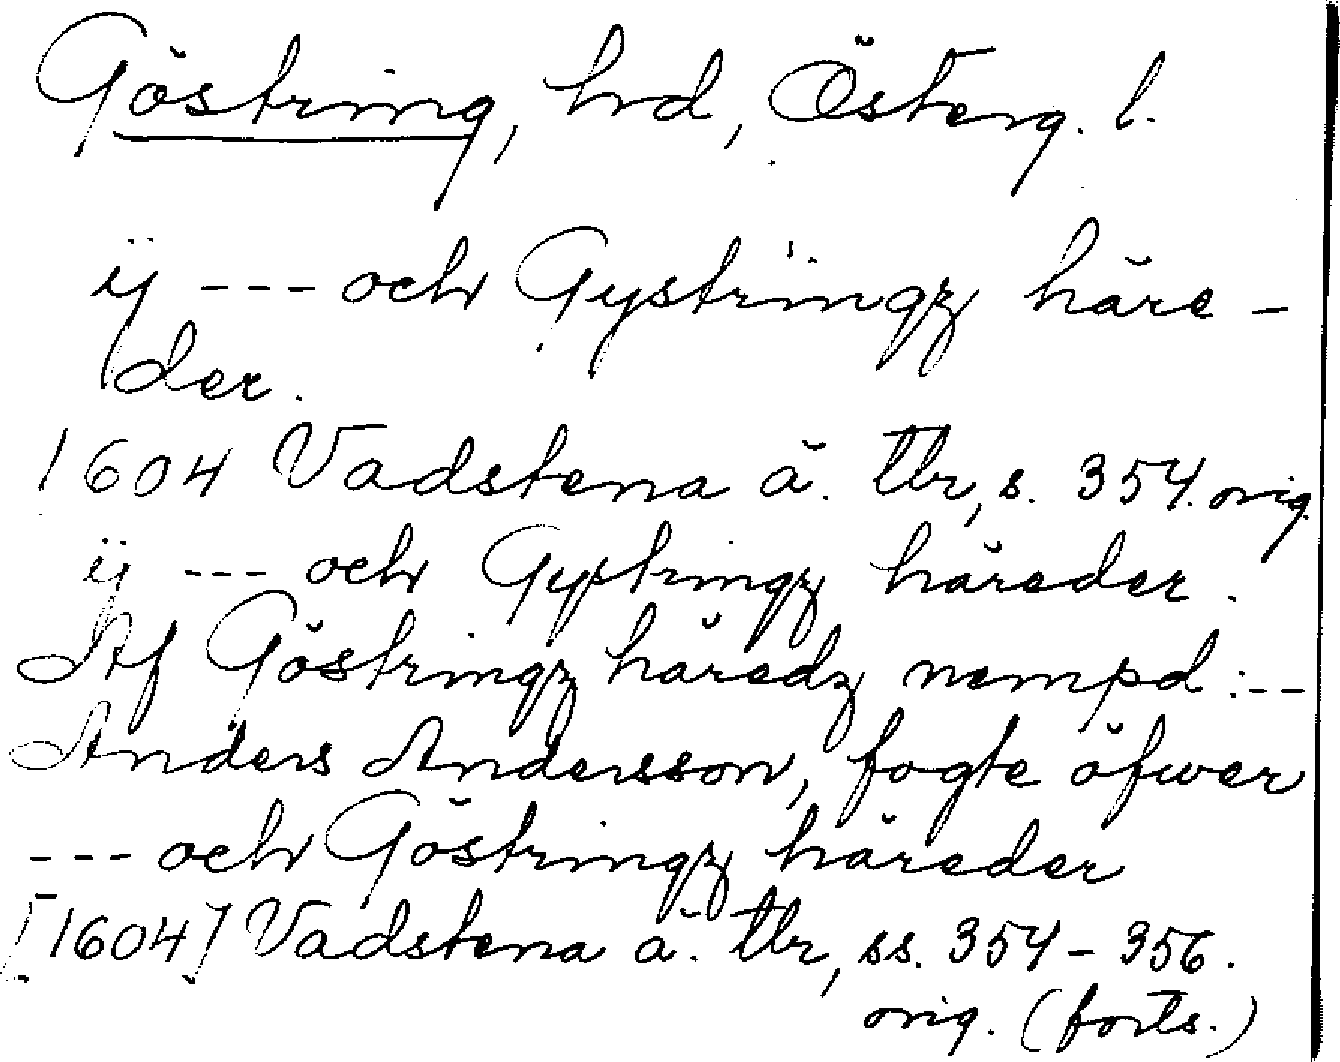 Göstring, hrd, Österg. l.
ÿ --- och Gystringz häre-
der.
1604 Vadstena ä. tbr, s. 354. orig.
ÿ --- och Gystringz häreder.
Af Göstringz häredz nempd: --
Anders Andersson, fogte öfwer
--- och Göstringz häreder
[1604] Vadstena ä. tbr, ss. 354-356.
orig. (forts.)